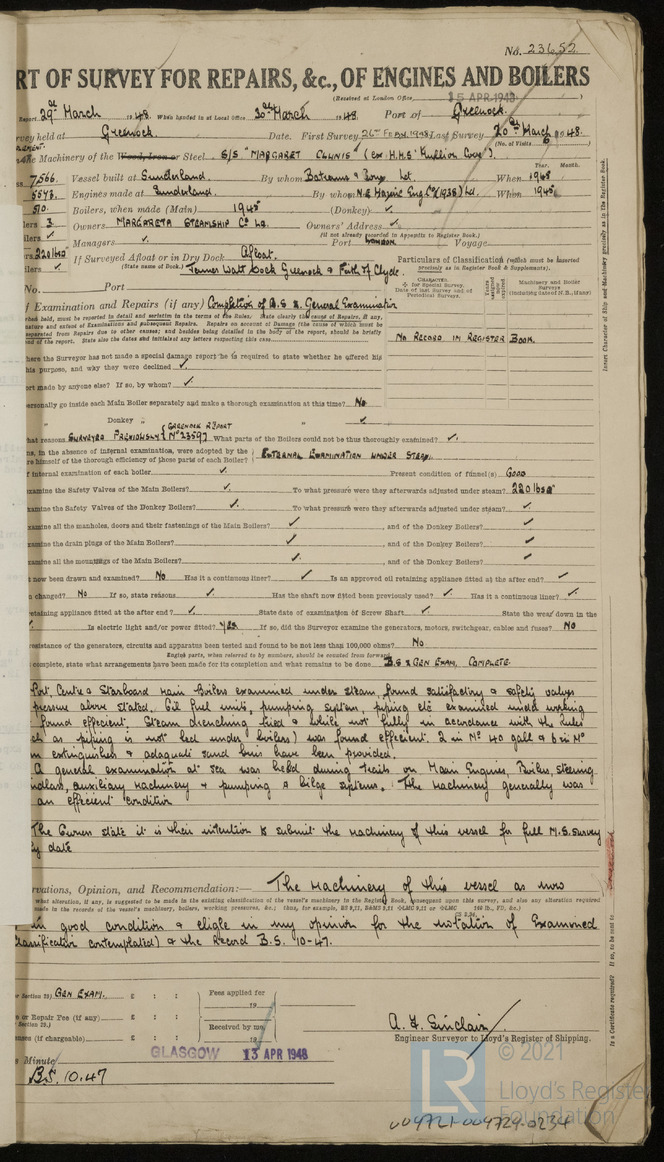 No. 23652
RT OF SURVEY FOR REPAIRS, &c., OF ENGINES AND BOILERS
(Received at London Office 15 APR 1948)
Report 29th March 1948 When handed in at Local Office 30th March 1948 Port of Greenock.
rvey held at Greenock. Date. First Survey Last Survey 20th March 1948.
(No. of Visits 6)
the Machinery of the Wood, Iron or Steel S/S "MARGARET (ex H.M.S
Year. Month.
7,566. Vessel built at Sunderland. By whom & Sons Ltd. When 1945
5573. Engines made at Sunderland. By whom N.E Marine Eng Co (1938) Ltd. When 1945
510. Boilers, when made (Main) 1945 (Donkey) ✓
lers 3 Owners MARGARETA STEAMSHIP Co Ld. Owners' Address ✓
(if not already recorded in Appendix to Register Book.)
ilers ✓ Managers ✓ Port LONDON. Voyage
220 lbs If Surveyed Afloat or in Dry Dock Afloat.
(State name of Dock.) James Watt Dock Greenock & Firth of Clyde.
Particulars of Classification (which must be inserted precisely as in Register Book & Supplements).
No. Port
f Examination and Repairs (if any) Completion of B.S. & General Examination
NO RECORD IN REGISTER BOOK.
here the Surveyor has not made a special damage report he is required to state whether he offered his
his purpose, and why they were declined ✓
ort made by anyone else? If so, by whom? ✓
ersonally go inside each Main Boiler separately and make a thorough examination at this time? No
Donkey " " ✓
hat reasons SURVEYED PREVIOUSLY (GREENOCK REPORT No 23597) What parts of the Boilers could not be thus thoroughly examined? ✓
ns, in the absence of internal examination, were adopted by the
re himself of the thorough efficiency of those parts of each Boiler? EXTERNAL EXAMINATION UNDER STEAM.
f internal examination of each boiler ✓ Present condition of funnel(s) GOOD
xamine the Safety Valves of the Main Boilers? ✓ To what pressure were they afterwards adjusted under steam? 220 lbs □"
xamine the Safety Valves of the Donkey Boilers? ✓ To what pressure were they afterwards adjusted under steam? ✓
xamine all the manholes, doors and their fastenings of the Main Boilers? ✓, and of the Donkey Boilers? ✓
xamine the drain plugs of the Main Boilers? ✓, and of the Donkey Boilers? ✓
xamine all the mountings of the Main Boilers? ✓, and of the Donkey Boilers? ✓
t now been drawn and examined? No Has it a continuous liner? ✓ Is an approved oil retaining appliance fitted at the after end? ✓
n changed? No If so, state reasons ✓ Has the shaft now fitted been previously used? ✓ Has it a continuous liner? ✓
retaining appliance fitted at the after end? ✓ State date of examination of Screw Shaft ✓ State the wear down in the
✓ Is electric light and/or power fitted? Yes If so, did the Surveyor examine the generators, motors, switchgear, cables and fuses? NO
resistance of the generators, circuits and apparatus been tested and found to be not less than 100,000 ohms? No
Engine parts, when referred to by numbers, should be counted from forward.
complete, state what arrangements have been made for its completion and what remains to be done B.S & GEN EXAM, COMPLETE
Port, Centre & Starboard main boilers examined under steam, found satisfactory & safety valves
pressure above stated. Oil fuel units, pumping system, piping etc examined under working
found efficient. Steam drenching tried & while not fully in accordance with the rules
ch as piping is not led under boilers) was found efficient. 2 in No 40 gall & 6 in No
m extinguishers & adequate sand bins have been provided.
A general examination at sea was held during trials on Main Engines, Boilers, steering
ndlass, auxiliary machinery & pumping & bilge systems. The machinery generally was
an efficient condition
The Owners state it is their intention to submit the machinery of this vessel for full M.S. survey
ly date
rvations, Opinion, and Recommendation:— The machinery of this vessel as now
in good condition & eligible in my opinion for the notation of Examined
Classification contemplated) & the Record B.S. 10-47.
r Section 29) GEN EXAM. £ : : Fees applied for
19
e or Repair Fee (if any) £ : :
r Section 29.) Received by me,
nses (if chargeable) £ : : 19
A. F. Sinclair
Engineer Surveyor to Lloyd's Register of Shipping.
Minute GLASGOW 13 APR 1948
B.S. 10.47
Insert Character of Ship and Machinery precisely as in the Register Book.
Is a Certificate required? If so, to be sent to
LR
© 2021
Lloyd's Register
Foundation
004721-004729-0234